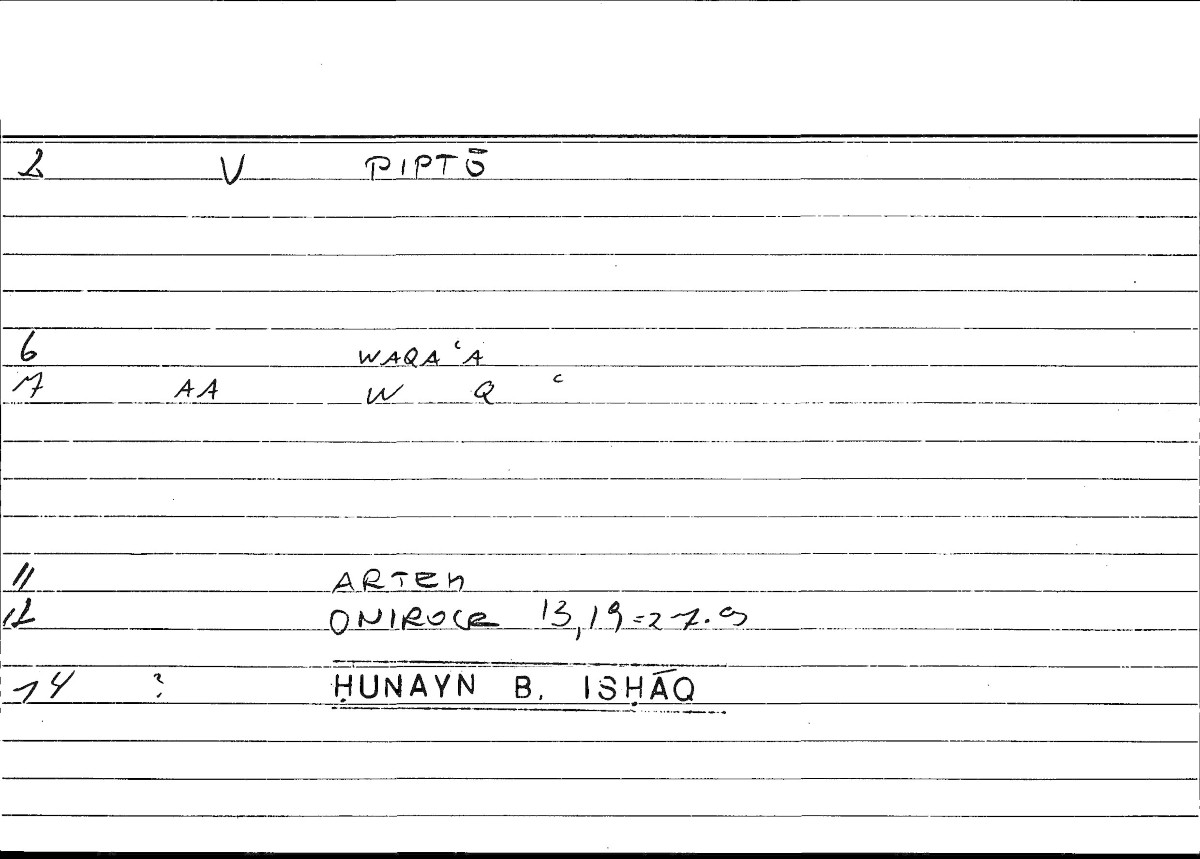 2 V PIPTŌ
6 WAQAʿA
7 AA W Q ʿ
11 ARTEM
12 ONIROCR 13,19=27.9
14 ? ḤUNAYN B. ISḤĀQ